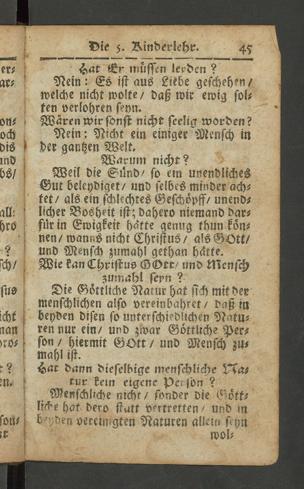 Die 5. Kinderlehr. 45
Hat Er müssen leyden ?
Nein : Es ist aus Liebe geschehen /
welche nicht wolte / daß wir ewig sol-
ten verlohren seyn.
Wären wir sonst nicht seelig worden ?
Nein : Nicht ein einiger Mensch in
der gantzen Welt.
Warum nicht ?
Weil die Sünd / so ein unendliches
Gut beleydiget / und selbes minder ach-
tet / als ein schlechtes Geschöpff / unend-
licher Bosheit ist ; dahero niemand dar-
für in Ewigkeit hätte genug thun kön-
nen / wanns nicht Christus / als GOtt /
und Mensch zumahl gethan hätte.
Wie kan Christus GOtt / und Mensch
zumahl seyn ?
Die Göttliche Natur hat sich mit der
menschlichen also vereinbahret / daß in
beyden disen so unterschiedlichen Natu-
ren nur ein / und zwar Göttliche Per-
son / hiermit GOtt / und Mensch zu-
mahl ist.
Hat dann dieselbige menschliche Na-
tur kein eigene Person ?
Menschliche nicht / sonder die Gött-
liche hat dero statt vertretten / und in
beyden vereinigten Naturen allein seyn
wol-